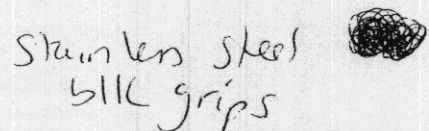 stainless steel
blk grips